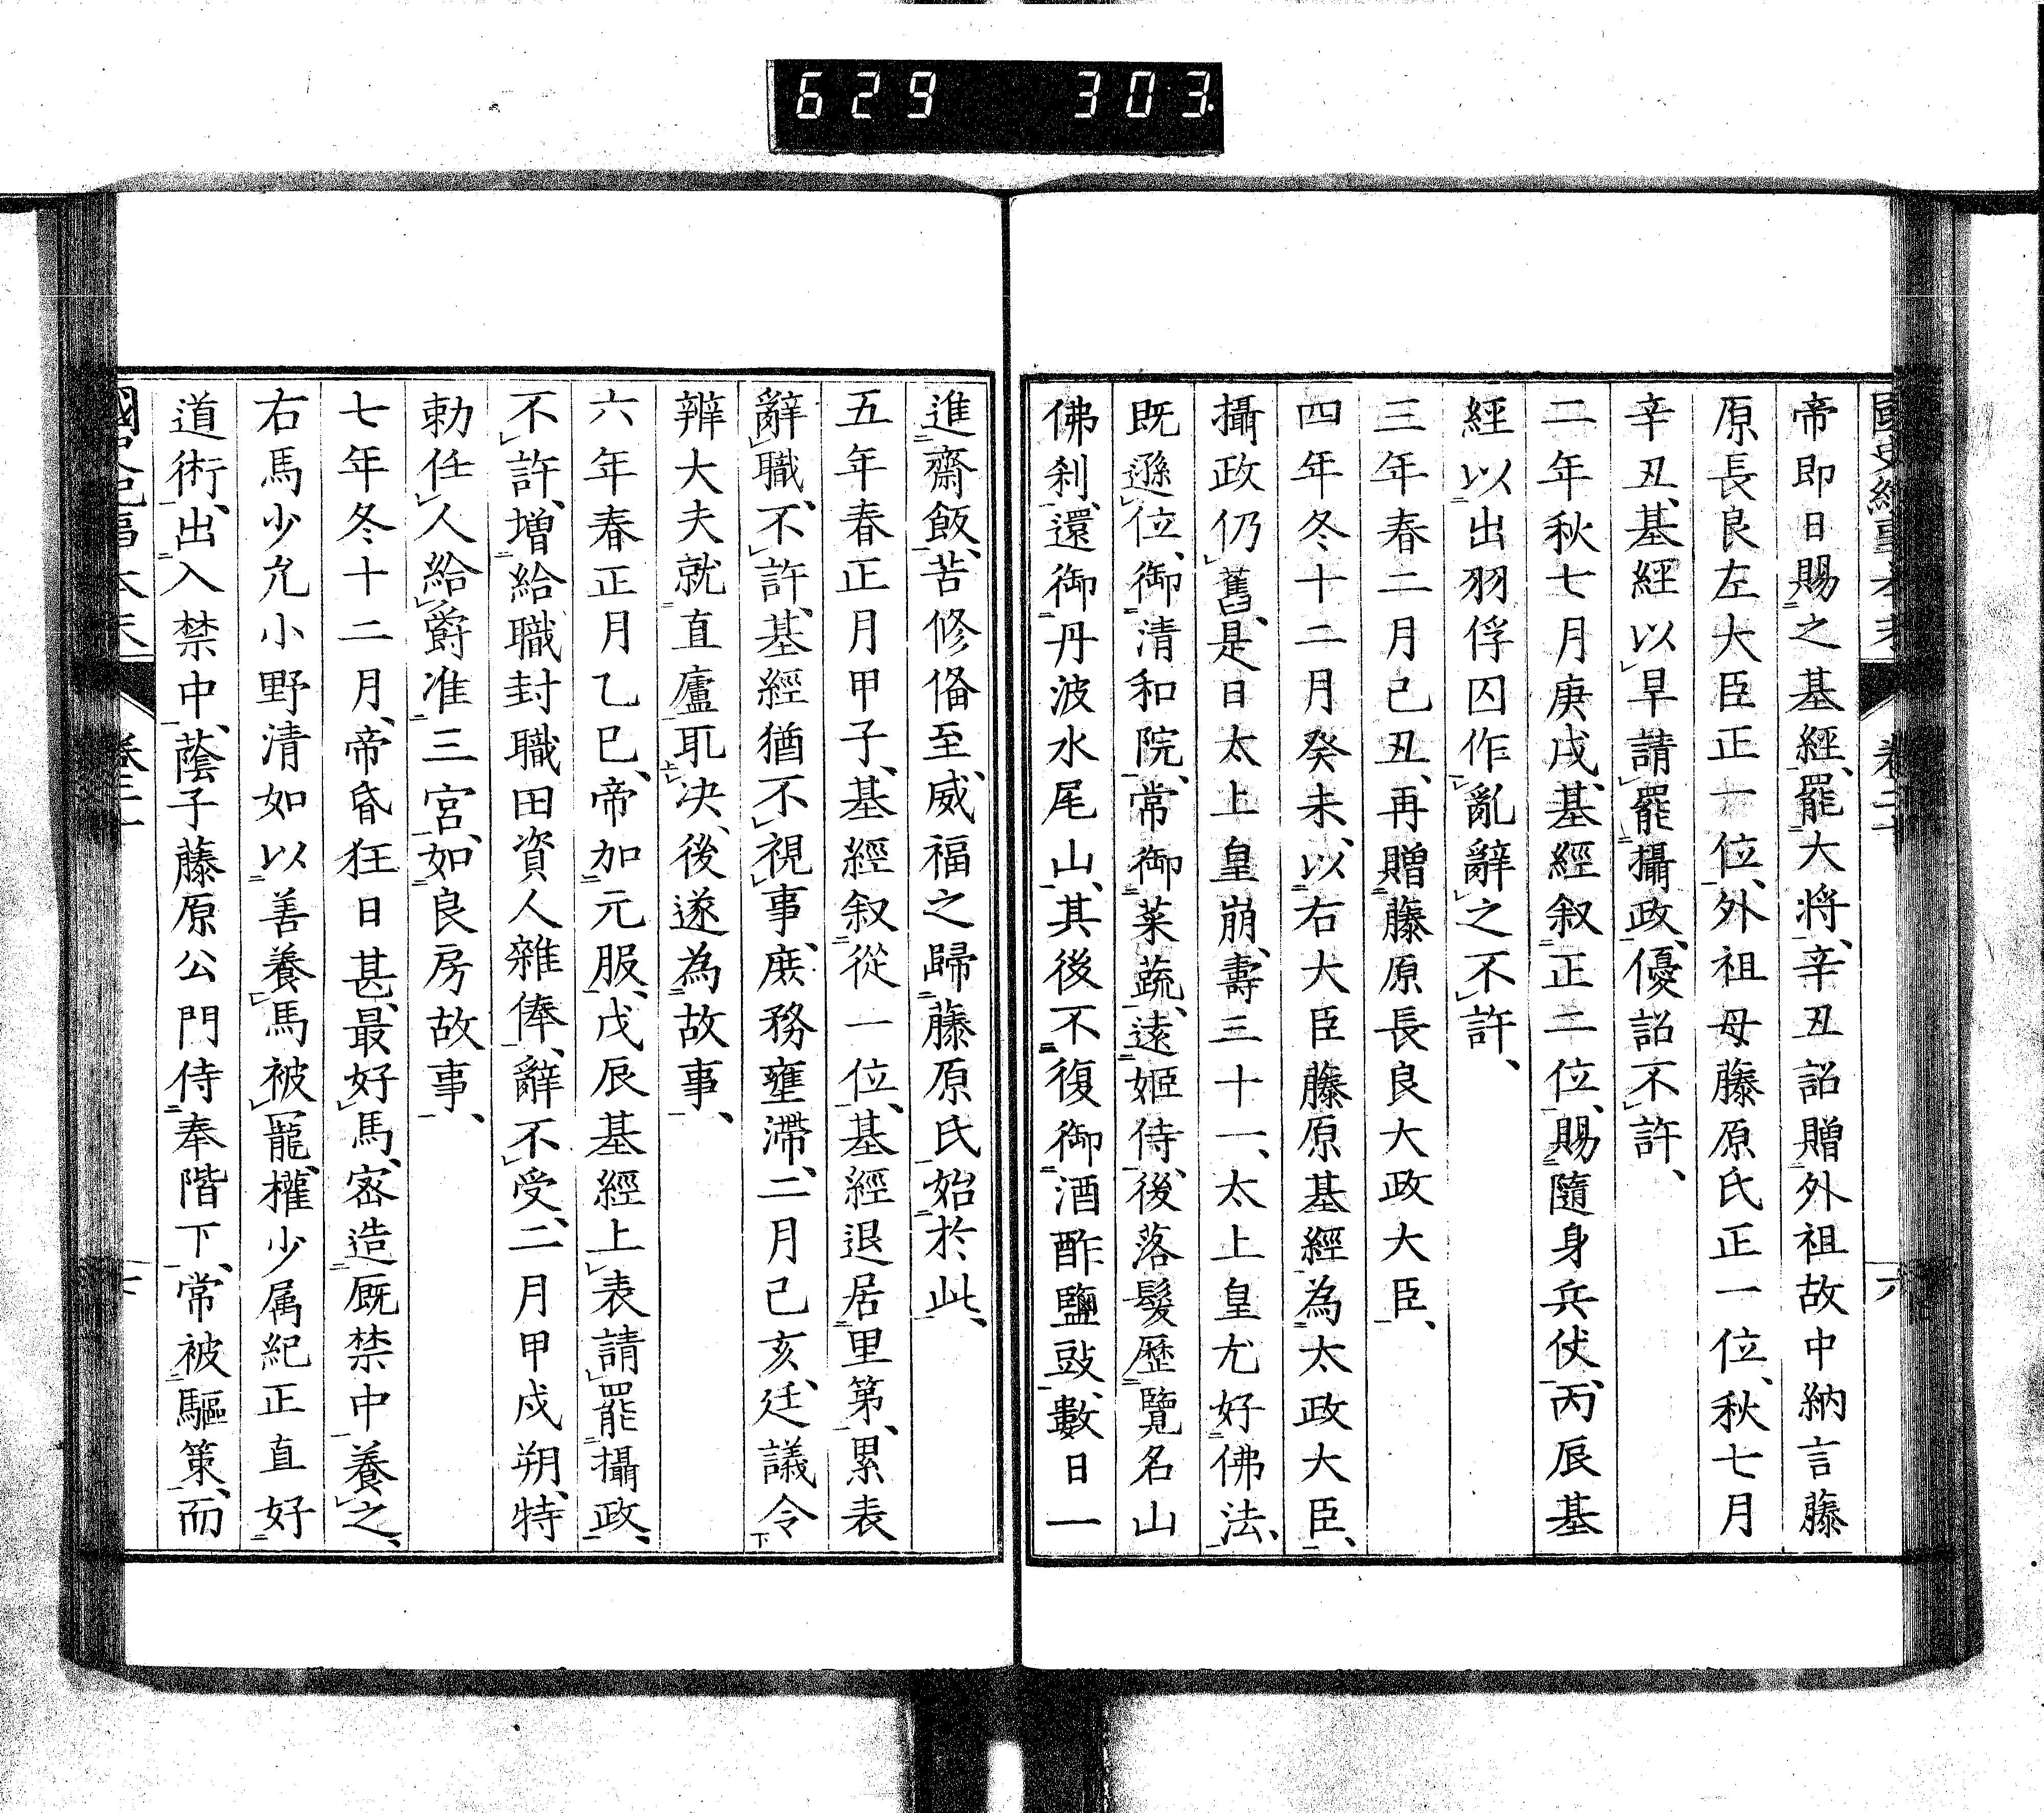 629 303
帝即日賜之基經、罷大将、辛丑詔贈外祖故中納言藤
原長良左大臣正一位、外祖母藤原氏正一位、秋七月
辛丑、基經以早請罷攝政、優詔不許、
二年秋七月庚戌、基經叙正二位、賜隨身兵仗、丙辰基
經以出羽俘囚作亂辭之不許、
三年春二月己丑、再贈藤原長良大政大臣、
四年冬十二月癸未、以右大臣藤原基經為太政大臣、
攝政仍舊、是日太上皇崩、壽三十一、太上皇尤好佛法、
既遜位、御清和院、常御菜蔬、遠姬侍、後落髮歷覽名山
佛刹、還御丹波水尾山、其後不復御酒酢鹽豉、數日一
進齋飯、苦修俻至、威福之歸藤原氏、始於此、
五年春正月甲子、基經叙從一位、基經退居里第、累表
辭職、不許、基經猶不視事、庶務壅滯、二月己亥、廷議令
辨大夫就直廬取决、後遂為故事、
六年春正月乙巳、帝加元服、戊辰基經上表請罷攝政、
不許、增給職封職田資人雜俸、辭不受、二月甲戍朔、特
勅任人給爵准三宮、如良房故事、
七年冬十二月、帝昏狂日甚、最好馬、密造厩禁中養之、
右馬少允小野清如以善養馬被寵、權少属紀正直好
道術、出入禁中、蔭子藤原公門侍奉階下、常被驅策、而